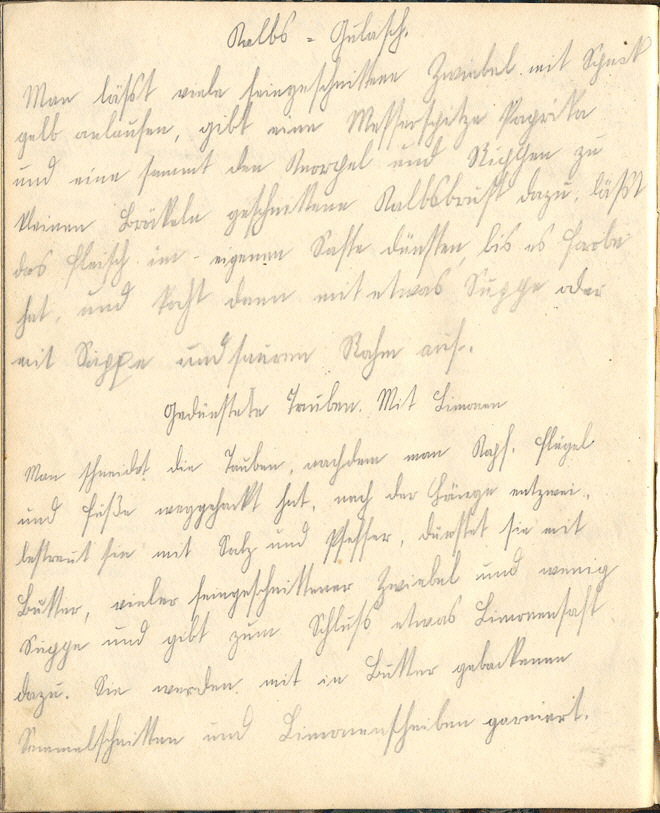 Kalbs = Gulasch.
Man läßt viele feingeschnittene Zwiebel mit Schmalz
gelb anlaufen, gibt eine Messerspitze Paprika
und eine sammt den Knorpel und Rippchen zu
kleinen Bröckeln geschnittene Kalbsbrust dazu, läßt
das Fleisch im eigenen Safte dünsten, bis es Farbe
hat, und kocht dann mit etwas Suppe oder
mit Suppe und sauren Rahm auf.
Gedünstete Tauben. Mit Limonen
Man schneidet die Tauben, nachdem man Kopf, Flügel
und Füße weggehackt hat, nach der Länge entzwei,
bestreut sie mit Salz und Pfeffer, dünstet sie mit
Butter, vieler feingeschnittener Zwiebel und wenig
Suppe und gibt zum Schluß etwas Limonensaft
dazu. Sie werden mit in Butter gebackenen
Semmelschnitten und Limonenscheiben garniert.